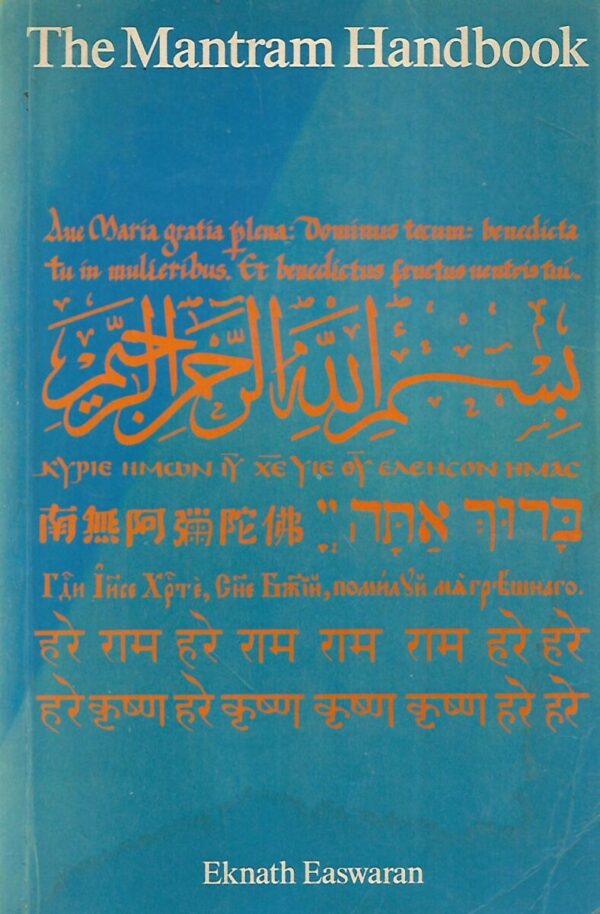 The Mantram Handbook
Ave Maria gratia plena: Dominus tecum: benedicta
tu in mulieribus. Et benedictus fructus ventris tui.
بِسْمِ اللَّهِ الرَّحْمَٰنِ الرَّحِيمِ
ΚΥΡΙΕ ΗΜΩΝ ΙΥ ΧΕ ΥΙΕ ΘΥ ΕΛΕΗCΟΝ ΗΜΑC
南無阿彌陀佛 בָּרוּךְ אַתָּה יְיָ
Гдⷭ҇и І҆и҃се Хрⷭ҇тѐ, Сн҃е Бж҃їй, поми́лꙋй мѧ̀ грѣ́шнаго.
हरे राम हरे राम राम राम हरे हरे
हरे कृष्ण हरे कृष्ण कृष्ण कृष्ण हरे हरे
Eknath Easwaran